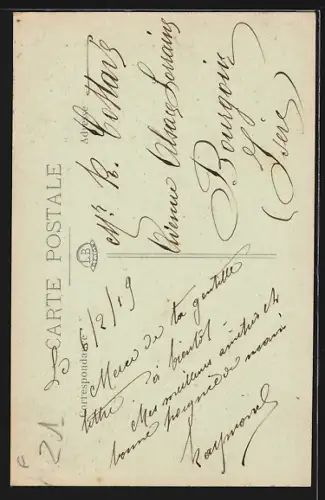 CARTE POSTALE
Correspondance
Adresse
LB
5/2/19
Merci de ta gentille
lettre à bientôt
Mes meilleures amitiés et
bonne poignée de main
Raymond
Mr R. Collard
Avenue Alsace Lorraine
Bourgoin
(Isère
21